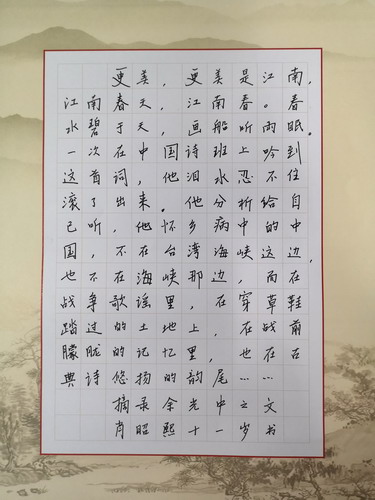 更美,更美是江南,
江南春天,江南春。春
水碧于天,画船听雨眠。
一次在中国诗班上吟到
这首词,他泪水忍不住
滚了出来。他分析给自
己听,他怀乡病中的中
国,不在台湾海峡这边,
也不在海峡那边,而在
战争歌谣里,在穿草鞋
踏过的土地上,在战前
朦胧的记忆里,也在古
典诗悠扬的韵尾……
摘录余光中之文
肖昭熙十一岁书